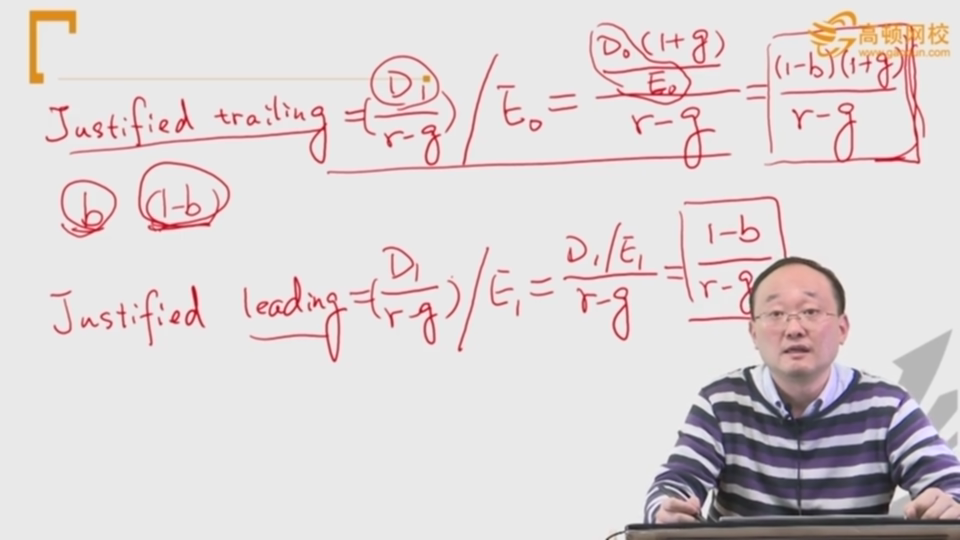 高顿网校
www.gaodun.com
Justified trailing = (D₁/(r-g)) / E₀ = (D₀(1+g)/E₀)/(r-g) = (1-b)(1+g)/(r-g)
b (1-b)
Justified leading = (D₁/(r-g)) / E₁ = (D₁/E₁)/(r-g) = (1-b)/(r-g)